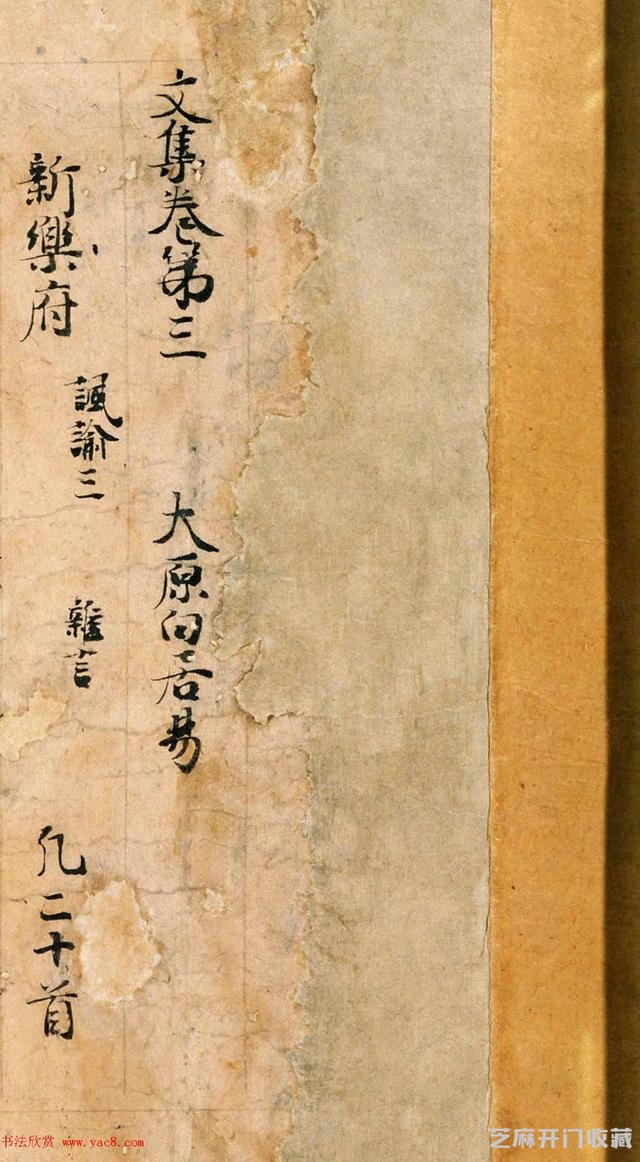 文集卷第三
大原白居易
新樂府
諷諭三
雜言
凡二十首
书法欣赏 www.yac8.com
芝麻开门收藏